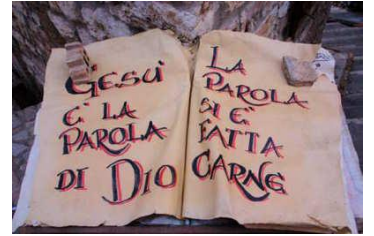 GESÙ
È LA
PAROLA
DI DIO
LA
PAROLA
SI È
FATTA
CARNE